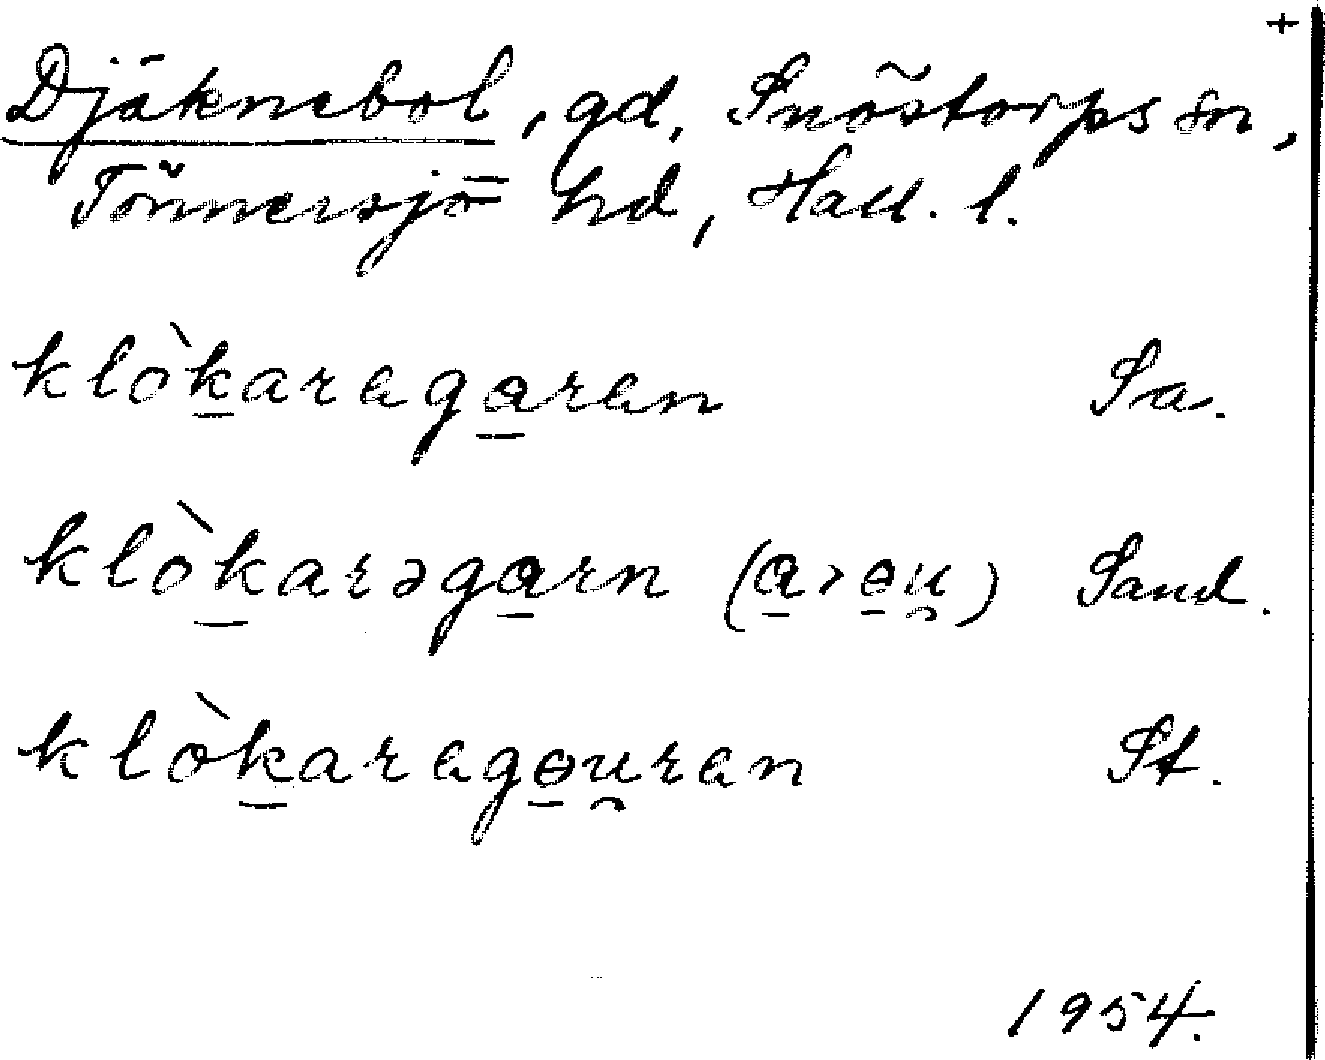 +
Djäknebol, gd, Snöstorps sn,
Tönnersjö hd, Hall. l.
klòk̲araga̲ran Sa.
klòk̲arəga̲rn (a̲ > ɵ̲u̯) Sand.
klòk̲aragɵ̲u̯ran St.
1954.